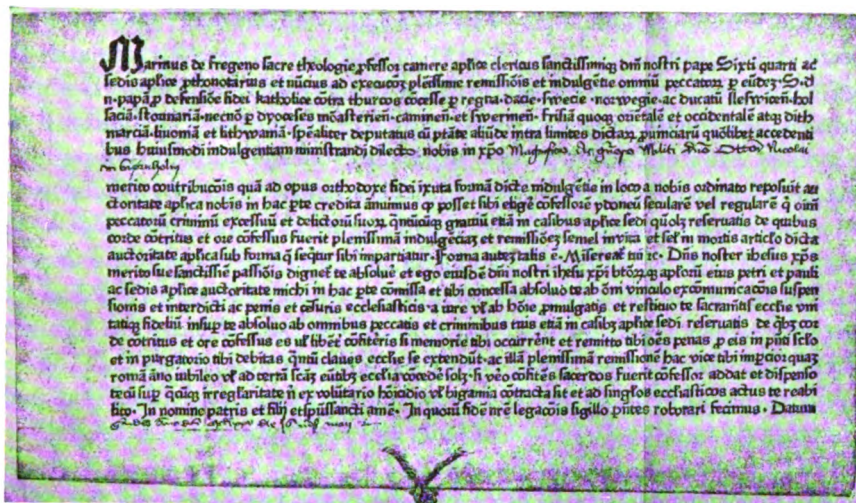 Marinus de fregeno sacre theologie professor camere aplice clericus sanctissimiq dni nostri pape Sixti quarti ac
sedis aplice prothonotarius et nuncius ad executoez plenissime remissiois et indulgentie omniu peccator p eundez S d
n papa p defensioe fidei katholice cotra thurcos cocesse p regna dacie swecie norwegie ac ducatu sleswicen hol
sacia stormaria necno p dyoceses monasterien caminen et swerinen Frisia quoq orientale et occidentale atq dith
marcia liuonia et lithwania spealiter deputatus cu ptate aliude intra limites dictar puinciaru quolibet accedenti
bus huiusmodi indulgentiam ministrandi dilecto nobis in xpo Militi Nicolai
merito contribucois qua ad opus orthodoxe fidei iuxta forma dicte indulgetie in loco a nobis ordinato reposuit au
ctoritate aplica nobis in hac pte credita annuimus q posset sibi elige cofessore ydoneu seculare vel regulare q oim
peccatoru criminu excessuu et delictoru suor qntucuq grauiu etia in casibus aplice sedi quolz reseruatis de quibus
corde cotritus et ore cofessus fuerit plenissima indulgeciaz et remissioez semel in vita et sel in mortis articlo dicta
auctoritate aplica sub forma q sequtur sibi impartiatur Forma autez talis e Misereat tui rc Dns noster ihesus xps
merito sue sanctissie passiois dignet te absolue et ego eiusde dni nostri ihesu xpi btorq aplor eius petri et pauli
ac sedis aplice auctoritate michi in hac pte comissa et tibi concessa absoluo te ab om vinculo excomunicacois suspen
sionis et interdicti ac penis et cesuris ecclesiasticis a iure vl ab hoie pmulgatis et restituo te sacrametis ecclie vni
tatiq fideliu insup te absoluo ab omnibus peccatis et criminibus tuis etia in casibz aplice sedi reseruatis de qbz cor
de cotritus et ore cofessus es vl libet cofiteris si memorie tibi occurret et remitto tibi oes penas p eis in pnti sclo
et in purgatorio tibi debitas qntu claues ecclie se extendut ac illa plenissima remissione hac vice tibi impcior quaz
roma ano iubileo vl ad terra scaz eutibz ecclia cocede solz si veo cofites sacerdos fuerit cofessor addat et dispenso
tecu sup qcuq irregularitate n ex volutario hoicidio vl bigamia cotracta sit et ad singlos ecclasticos actus te reabi
lito In nomine patris et filij et spussancti ame In quoru fide nre legacois sigillo pntes roborari fecimus Datum